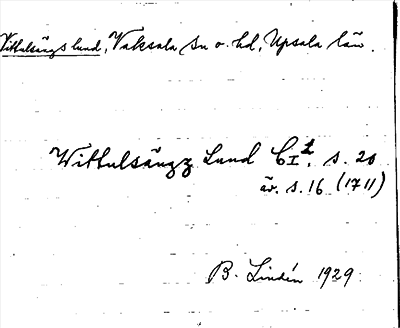 Vittulsängs lund, Vaksala sn o. hd, Upsala län.
Wittulsängz Lund CI2. s. 20
äv. s. 16 (1711)
B. Lindén 1929